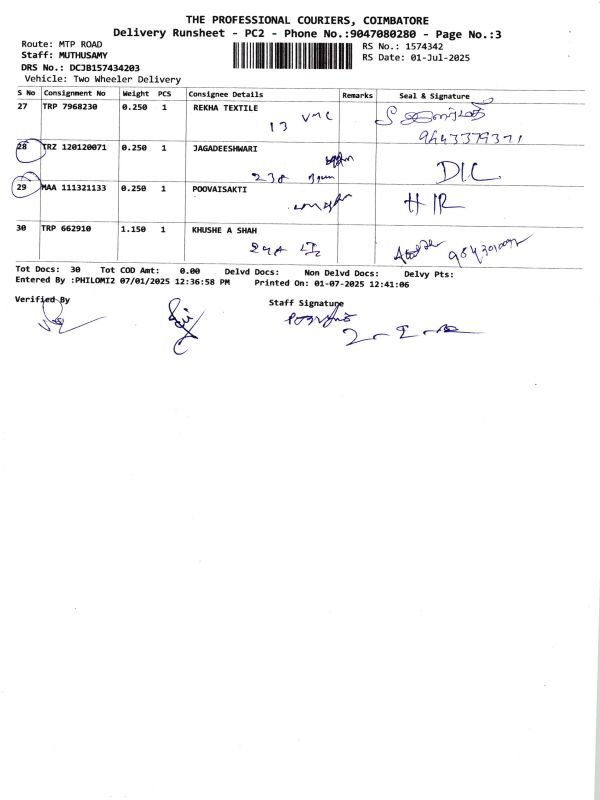 THE PROFESSIONAL COURIERS, COIMBATORE
Delivery Runsheet - PC2 - Phone No.:9047080280 - Page No.:3
Route: MTP ROAD
Staff: MUTHUSAMY
DRS No.: DCJB157434203
Vehicle: Two Wheeler Delivery
RS No.: 1574342
RS Date: 01-Jul-2025
S No Consignment No Weight PCS Consignee Details Remarks Seal & Signature
27 TRP 7968230 0.250 1 REKHA TEXTILE
13 VMC
9443379371
28 TRZ 120120071 0.250 1 JAGADEESHWARI
238
DIC
29 MAA 111321133 0.250 1 POOVAISAKTI
HIR
30 TRP 662910 1.150 1 KHUSHE A SHAH
Tot Docs: 30 Tot COD Amt: 0.00 Delvd Docs: Non Delvd Docs: Delvy Pts:
Entered By :PHILOMI2 07/01/2025 12:36:58 PM Printed On: 01-07-2025 12:41:06
Verified By
Staff Signature